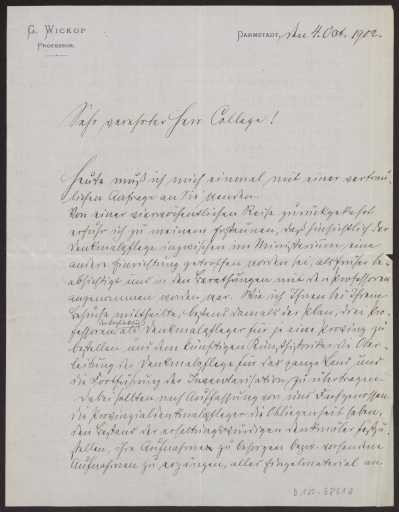 G. Wickop
Professor.
Darmstadt, den 4. Oct. 1902.
Sehr verehrter Herr College!
Heute muß ich mich einmal mit einer vertrau-
lichen Anfrage an Sie wenden.
Von einer vierwöchentlichen Reise zurückgekehrt
erfuhr ich zu meinem Erstaunen, daß hinsichtlich der
Denkmalpflege inzwischen im Ministerium eine
andere Einrichtung getroffen worden sei, als früher be-
absichtigt und in den Berathungen mit den Professoren
angenommen worden war. Wie ich Ihnen
mittheilte, bestand damals der Plan, drei Pro-
fessoren als Denkmalpfleger für je eine Provinz zu
bestellen, und dem künftigen Kunsthistoriker die Ober-
leitung der Denkmalpflege für das ganze Land und
die Fortführung der Inventarisation zu übertragen.
Dabei sollten nach Auffassung von uns Fachgenossen
die Provinzialdenkmalpfleger die Obliegenheit haben,
den Bestand der erhaltungswürdigen Denkmäler festzu-
stellen, ihre Aufnahme zu besorgen bezw. vorhandene
Aufnahmen zu ergänzen, alles Einzelmaterial an